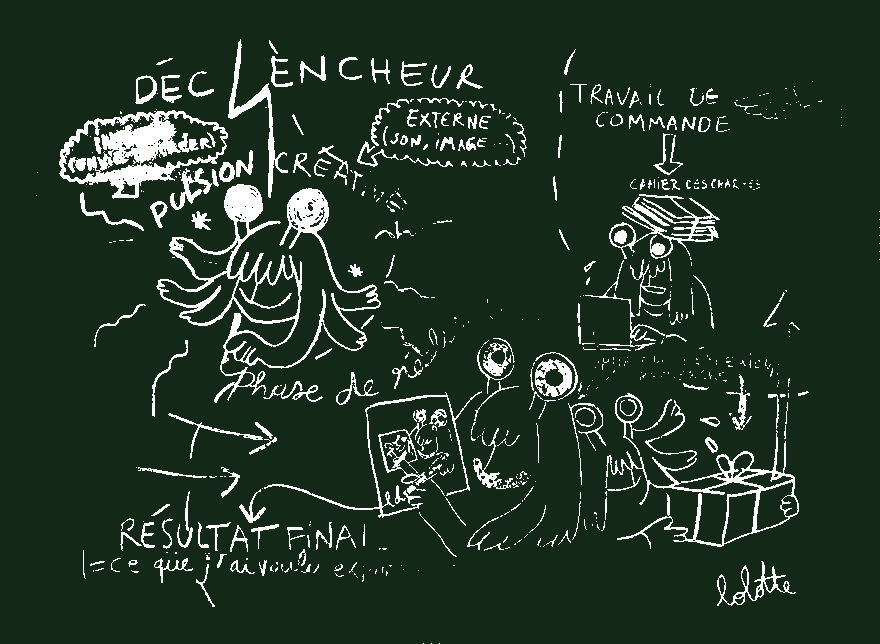 DÉCLENCHEUR
EXTERNE
(SON, IMAGE...)
PULSION CRÉATIVE
TRAVAIL DE
COMMANDE
CAHIER DES CHARGES
Phase de
RÉSULTAT FINAL
= ce que j'ai voulu
lolotte